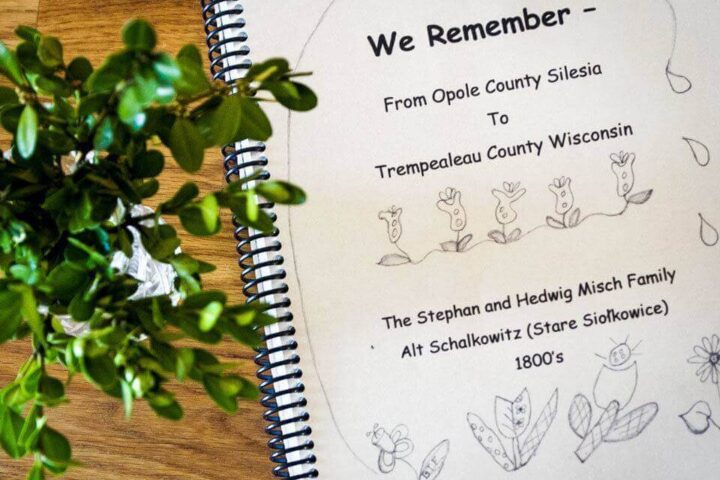 We Remember -
From Opole County Silesia
To
Trempealeau County Wisconsin
The Stephan and Hedwig Misch Family
Alt Schalkowitz (Stare Siołkowice)
1800's